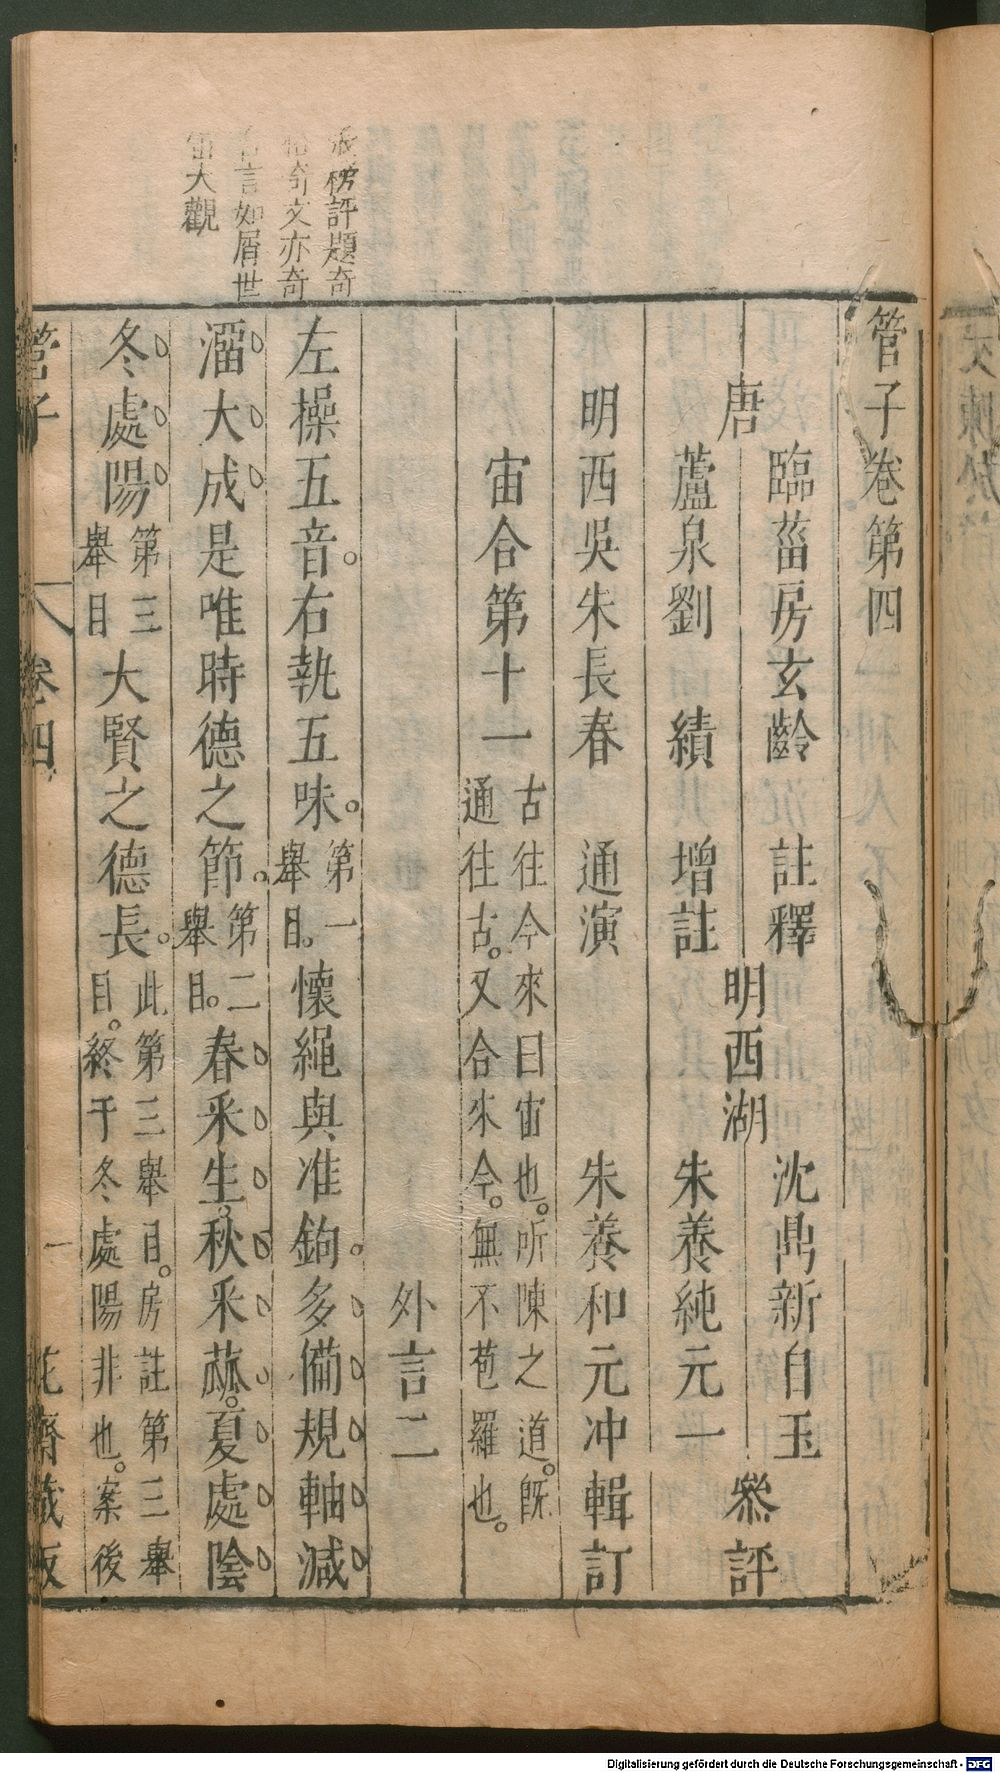 管子卷第四
唐 臨菑房玄齡 註釋
蘆泉劉 績 增註
明西湖 沈鼎新自玉
朱養純元一 參評
明西吳朱長春 通演 朱養和元冲輯訂
宙合第十一 古往今來曰宙也。所陳之道。既
通往古。又合來今。無不苞羅也。
外言二
左操五音。右執五味。第一
舉目。懷繩與准鉤。多備規軸減
溜大成是唯時德之節。第二
舉目。春釆生。秋釆蓏。夏處陰
冬處陽第三
舉目大賢之德長。此第三舉目。房註第三舉
目。終于冬處陽非也。案後
評題奇
奇文亦奇
言如屑世
大觀
管子
卷四
一
花齋藏板
Digitalisierung gefördert durch die Deutsche Forschungsgemeinschaft - DFG